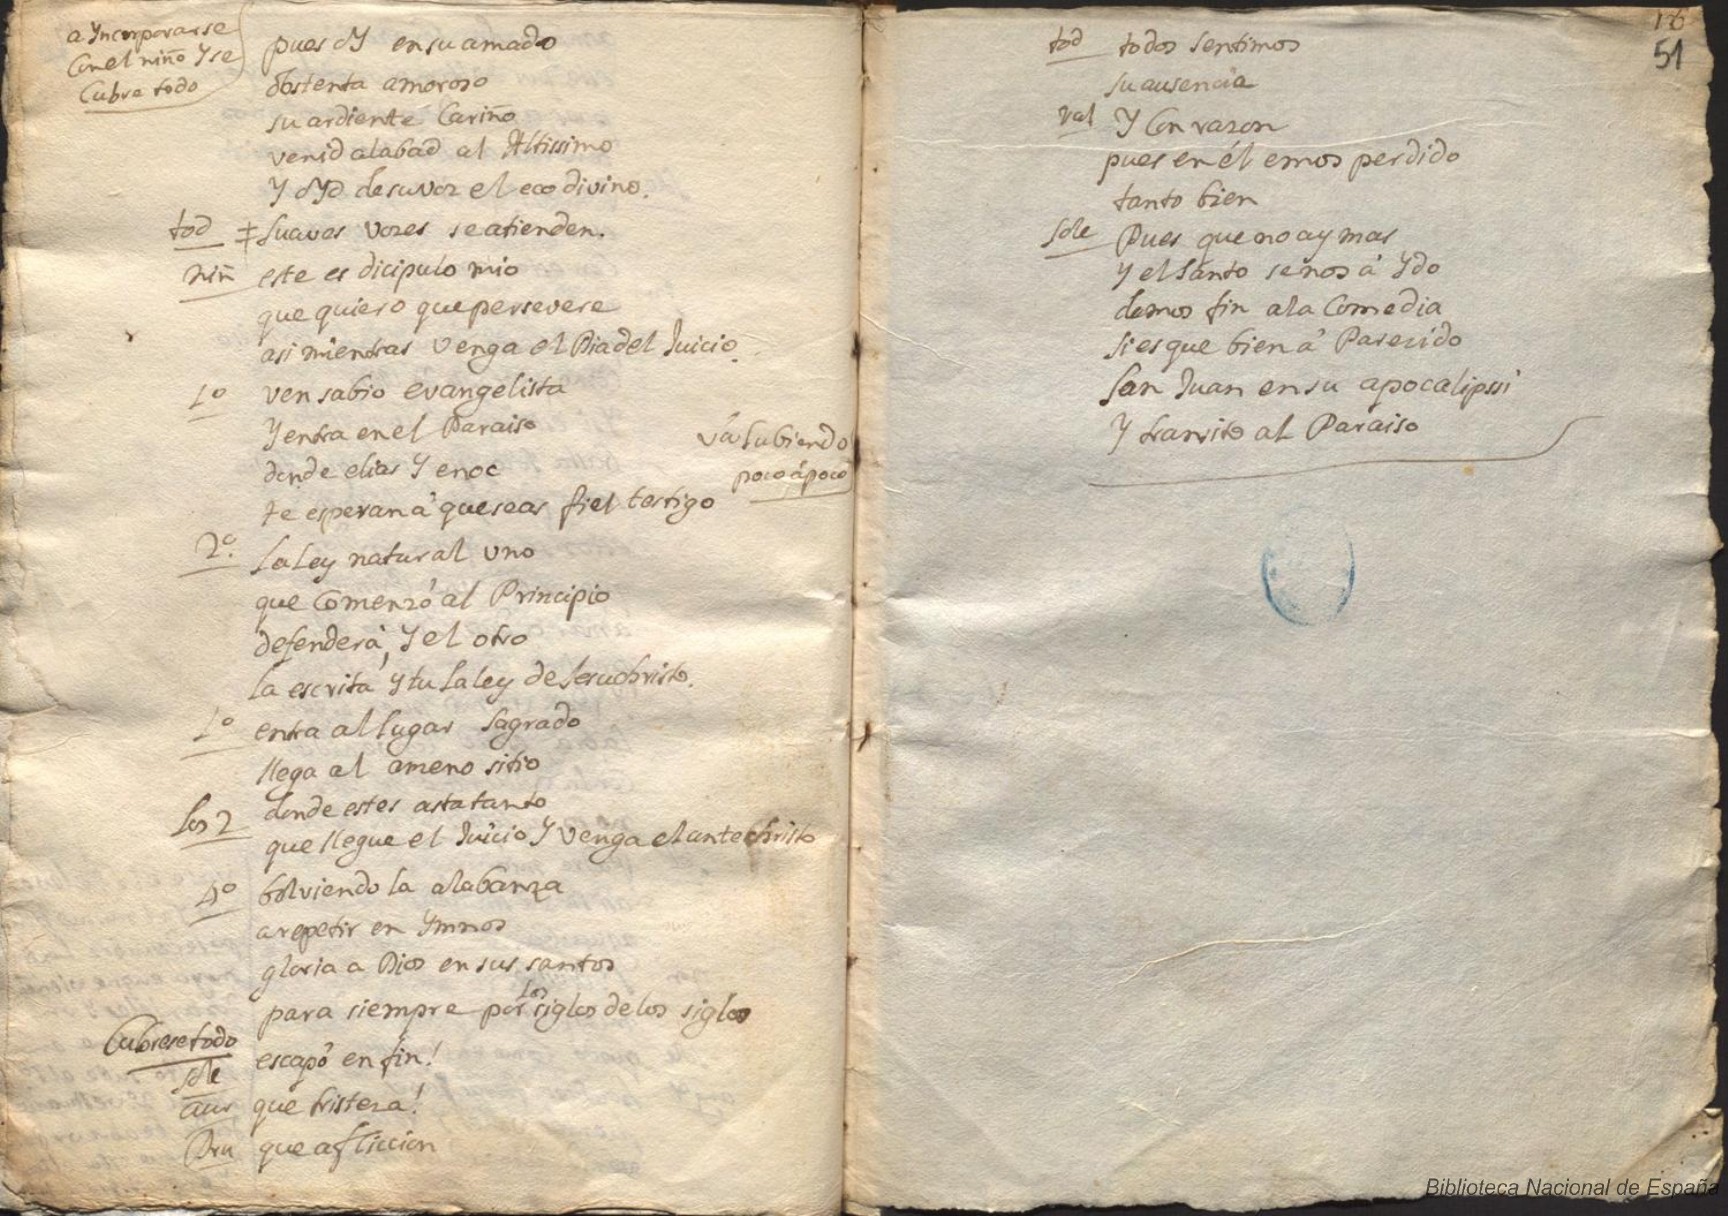 a Yncorporarse
con el niño Y se
Cubre todo
pues oY en su amado
obstenta amoroso
su ardiente Cariño
venid alabad al Altissimo
Y oYd de su voz el eco divino.
tod ‡ suaves vozes se atienden.
niñ este es dicipulo mio
que quiero que persevere
asi mientras venga el Dia del Juicio.
1º ven sabio evangelista
Y entra en el Paraiso
vá subiendo
poco á poco
donde elias Y enoc
te esperan á que seas fiel testigo
2º. la ley natural uno
que Comenzó al Principio
defenderá, Y el otro
la escrita, Y tu la ley de Jesuchristo.
1º entra al lugar sagrado
llega al ameno sitio
los 2 donde estes asta tanto
que llegue el Juicio Y venga el antechristo
4º bolviendo la alabanza
a repetir en Ymnos
gloria a Dios en sus santos
para siempre por los siglos de los siglos
Cubrese todo
sole escapó en fin!
aur que tristeza!
Dru que afliccion
126
51
tod todos sentimos
su ausencia
val Y Con razon
pues en él emos perdido
tanto bien
sole Pues que no ay mas
Y el santo se nos á Ydo
demos fin a la Comedia
si es que bien á Parezido
san Juan en su apocalipssi
Y transito al Paraiso
Biblioteca Nacional de España